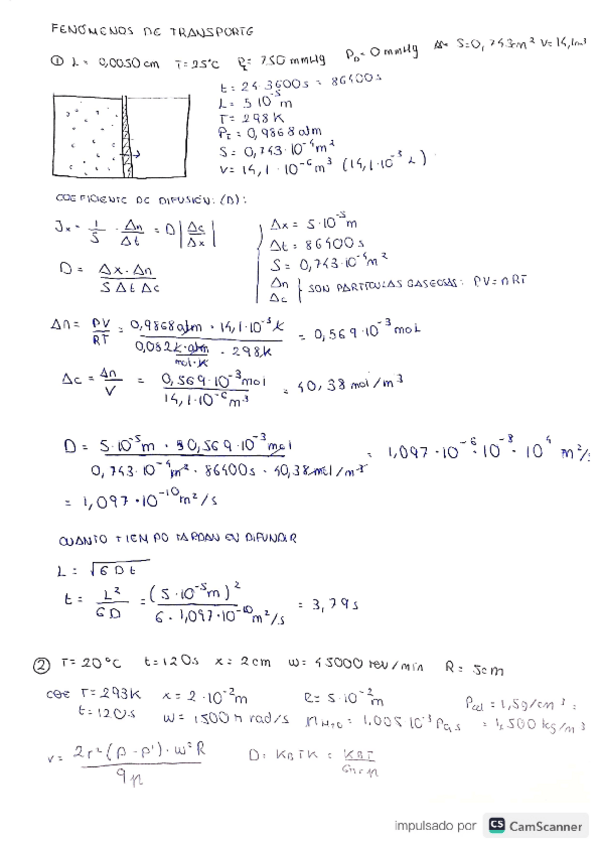 FENÓMENOS DE TRANSPORTE
① L = 0,0050 cm T = 25°C P = 750 mmHg P₀ = 0 mmHg S = 0,743 cm² V = 14,1 cm³
t = 24·3600s = 86400s
L = 5·10⁻⁵ m
T = 298 K
P_T = 0,9868 atm
S = 0,743·10⁻⁴ m²
V = 14,1·10⁻⁶ m³ (14,1·10⁻³ L)
COEFICIENTE DE DIFUSIÓN: (D):
Jx = 1/S · Δn/Δt = D |Δc/Δx|
Δx = 5·10⁻⁵ m
Δt = 86400s
S = 0,743·10⁻⁴ m²
D = Δx·Δn / SΔtΔc
Δn Δc } SON PARTÍCULAS GASEOSAS: PV = nRT
Δn = PV/RT = 0,9868 atm · 14,1·10⁻³ L / 0,082 L·atm/mol·K · 298K = 0,569·10⁻³ mol
Δc = Δn/V = 0,569·10⁻³ mol / 14,1·10⁻⁶ m³ = 40,38 mol/m³
D = 5·10⁻⁵ m · 0,569·10⁻³ mol / 0,743·10⁻⁴ m² · 86400s · 40,38 mol/m³ = 1,097·10⁻⁶·10⁻⁸·10⁴ m²/s
= 1,097·10⁻¹⁰ m²/s
CUANTO TIEMPO TARDAN EN DIFUNDIR
L = √6Dt
t = L²/6D = (5·10⁻⁵ m)² / 6·1,097·10⁻¹⁰ m²/s = 3,79s
② T = 20°C t = 120s x = 2cm w = 45000 rev/min R = 5cm
T = 293K x = 2·10⁻² m R = 5·10⁻² m = 1,5g/cm³ =
t = 120s w = 1500 π rad/s = 1,005·10⁻³ Pa·s = 1,500 kg/m³
v = 2r²(ρ-ρ')·w²R / 9η
impulsado por CS CamScanner